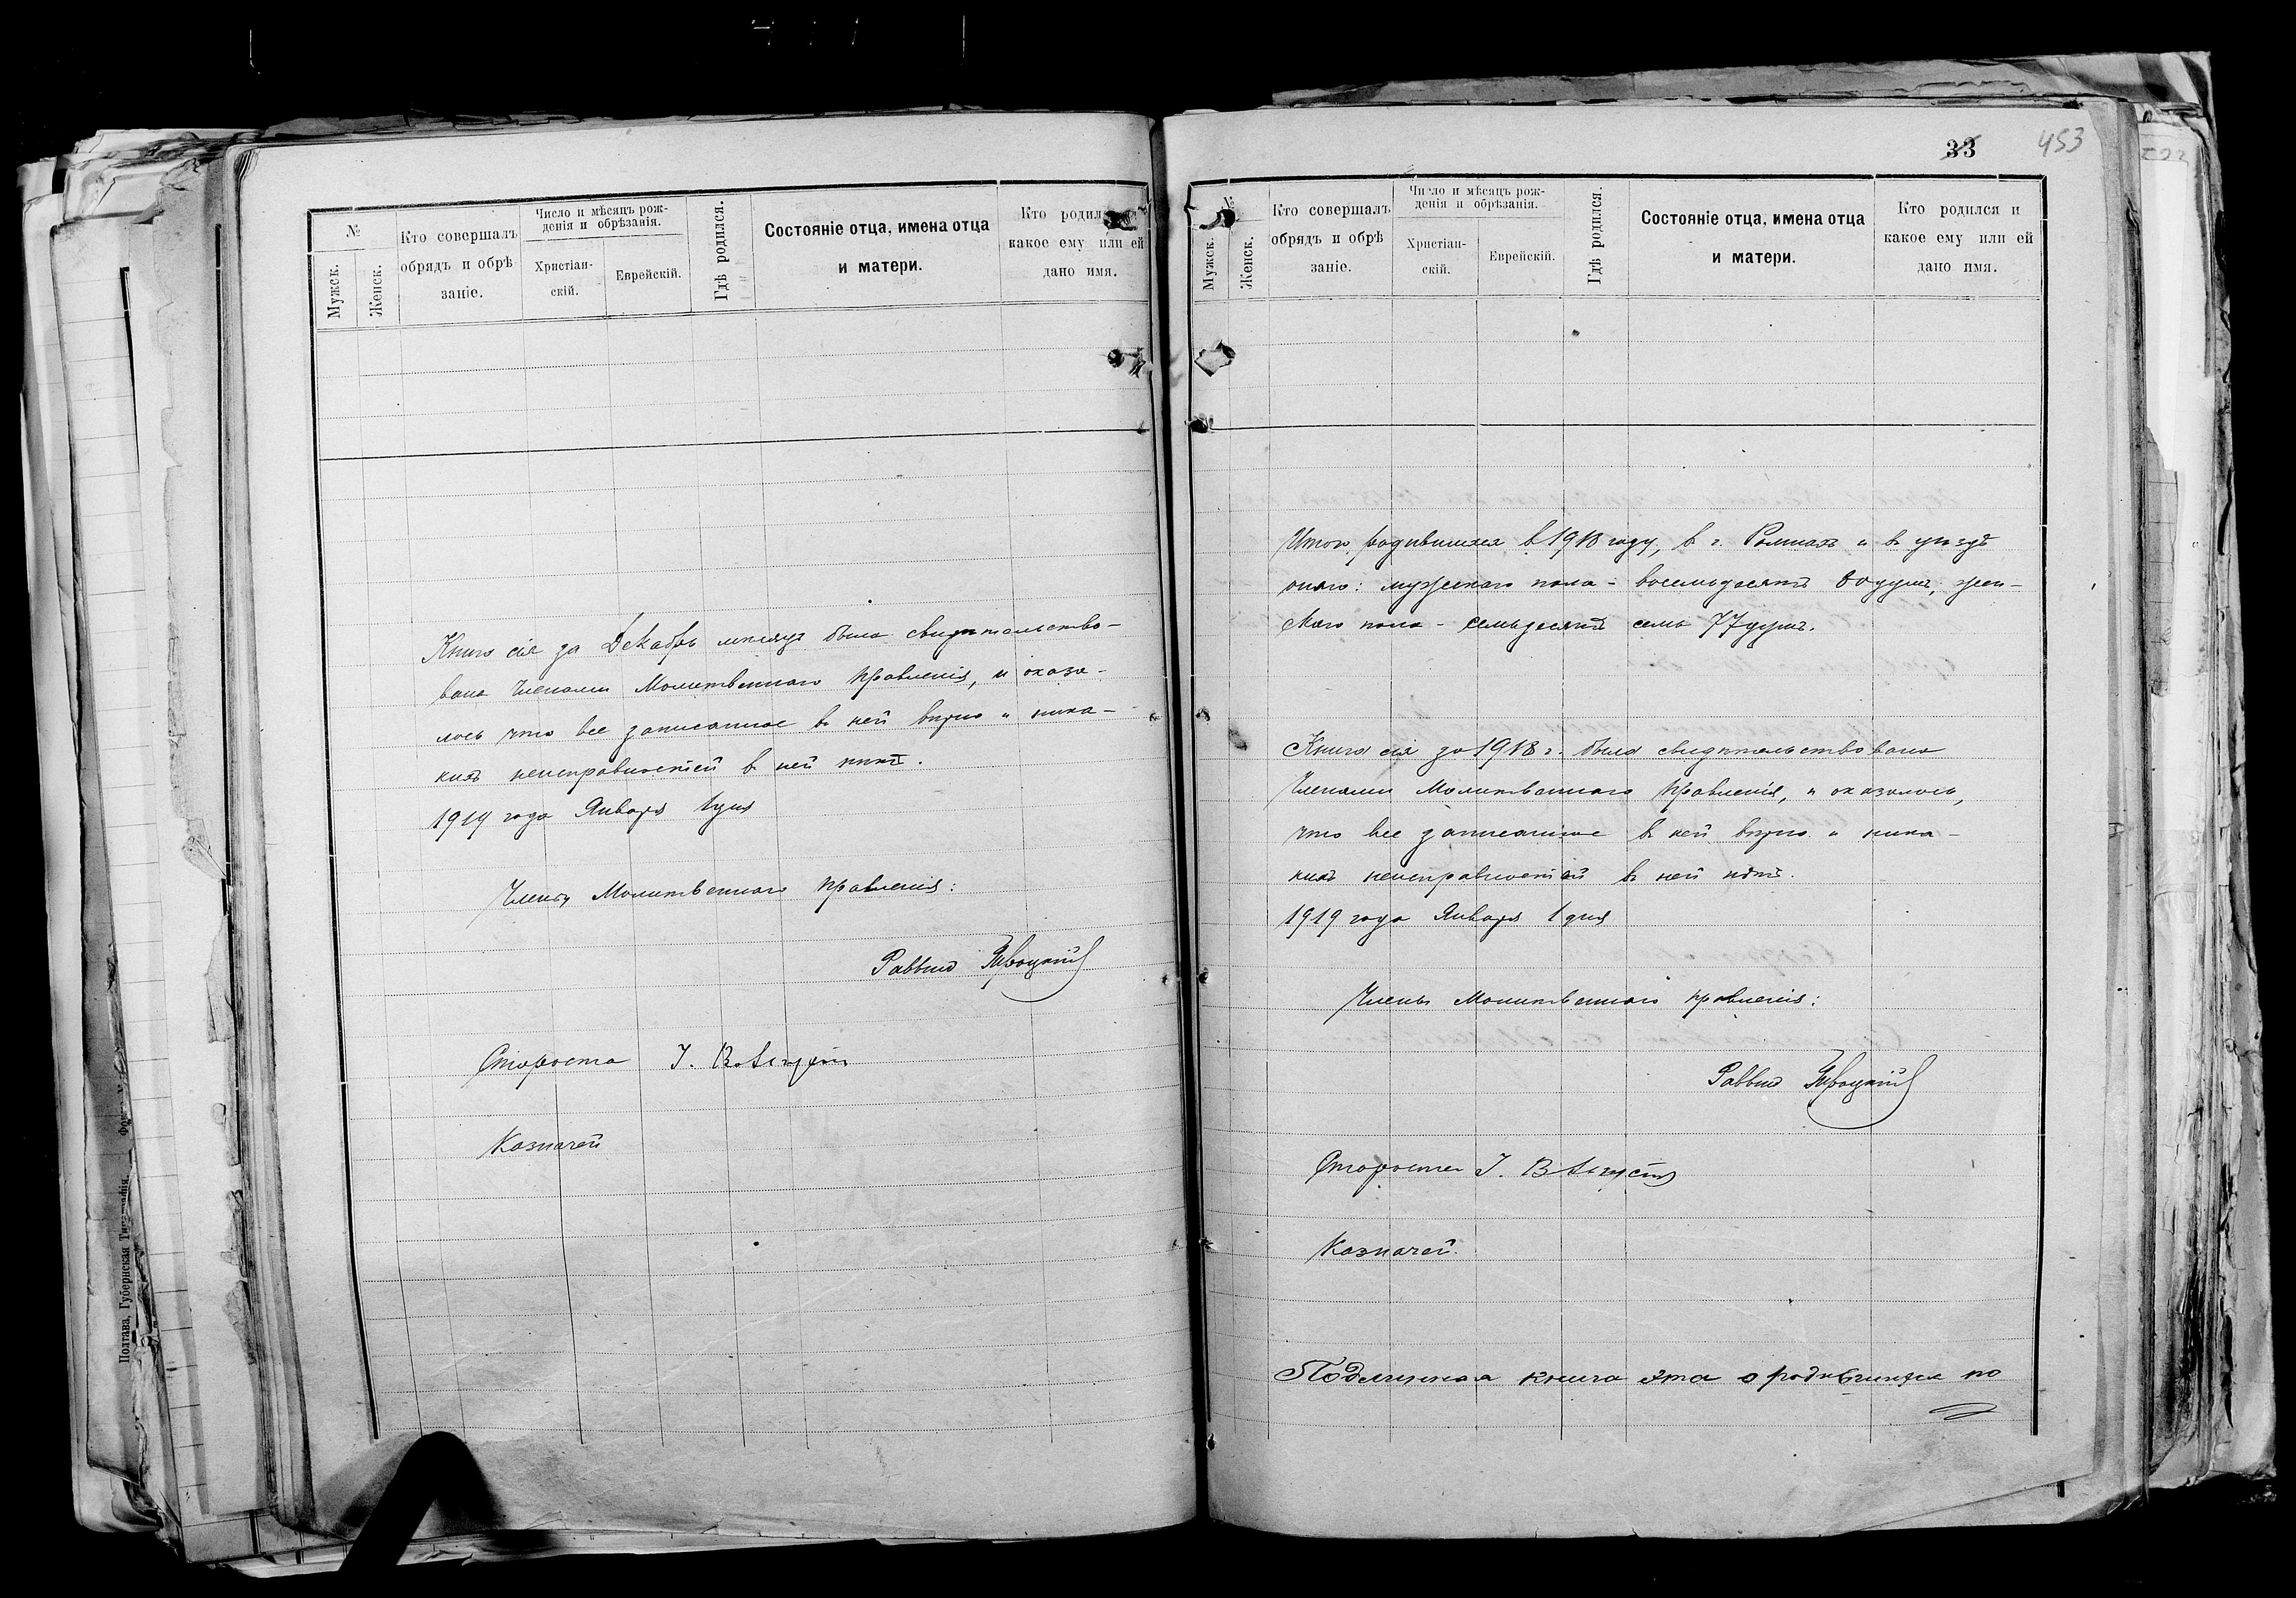 №
Мужск.
Женск.
Кто совершалъ
обрядъ и обрѣ
заніе.
Число и мѣсяцъ рож-
денія и обрѣзанія.
Христіан-
скій.
Еврейскій.
Гдѣ родился.
Состояніе отца, имена отца
и матери.
Кто родил
какое ему или ей
дано имя.
Книга сія за Декабрь мѣсяцъ была свидѣтельство-
вана Членами Молитвеннаго Правленія, и оказа-
лось что все записанное въ ней вѣрно и ника-
кихъ неисправностей въ ней нѣтъ.
1919 года Января 1 дня
Члены Молитвеннаго Правленія:
Раввинъ
Староста І.
Казначей
Полтава, Губернская Типографія.
33
453
№
Мужск.
Женск.
Кто совершалъ
обрядъ и обрѣ
заніе.
Число и мѣсяцъ рож-
денія и обрѣзанія.
Христіан-
скій.
Еврейскій.
Гдѣ родился.
Состояніе отца, имена отца
и матери.
Кто родился и
какое ему или ей
дано имя.
Итого родившихся в 1918 году, въ г. Ромнахъ и въ уѣздѣ
онаго: мужескаго пола - восемьдесятъ душъ; жен-
скаго пола - семьдесятъ семь 77 душъ.
Книга сія за 1918 г. была свидѣтельствована
Членами Молитвеннаго Правленія, и оказалось,
что все записанное въ ней вѣрно и ника-
кихъ неисправностей въ ней нѣтъ.
1919 года Января 1 дня
Члены Молитвеннаго правленія:
Раввинъ
Староста І.
Казначей.
Подлинная книга эта о родившихся по